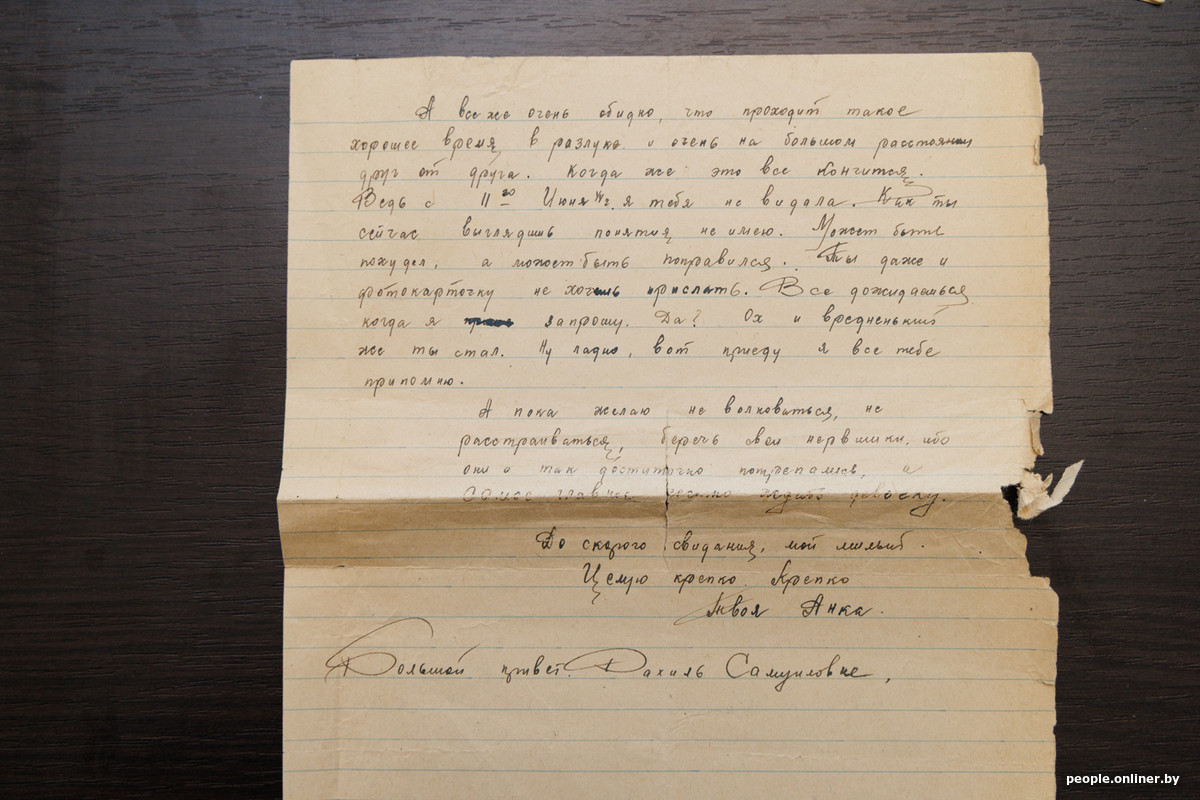 А все же очень обидно, что проходит такое
хорошее время в разлуке и очень на большом расстоянии
друг от друга. Когда же это все кончится.
Ведь с 11го Июня 44г. я тебя не видала. Как ты
сейчас выглядишь понятия не имею. Может быть
похудел, а может быть поправился. Ты даже и
фотокарточку не хочешь прислать. Все дожидаешься
когда я запрошу. Да? Ох и вредненький
же ты стал. Ну ладно, вот приеду я все тебе
припомню.
А пока желаю не волноваться, не
расстраиваться, беречь свои нервишки, ибо
они и так достаточно потрепались, и
самое главное ждать девочку.
До скорого свидания, мой милый.
Целую крепко крепко
Твоя Анка.
Большой привет Рахиль Самуиловне,
people.onliner.by